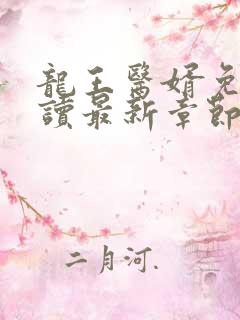 龍王醫婿免
讀最新章節
二月河.